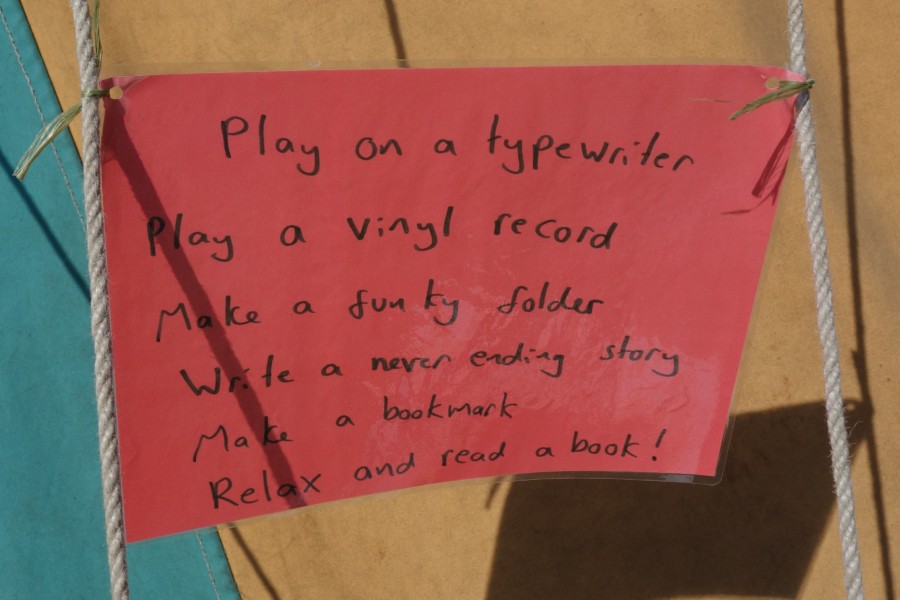 Play on a typewriter
Play a vinyl record
Make a funky folder
Write a never ending story
Make a bookmark
Relax and read a book!